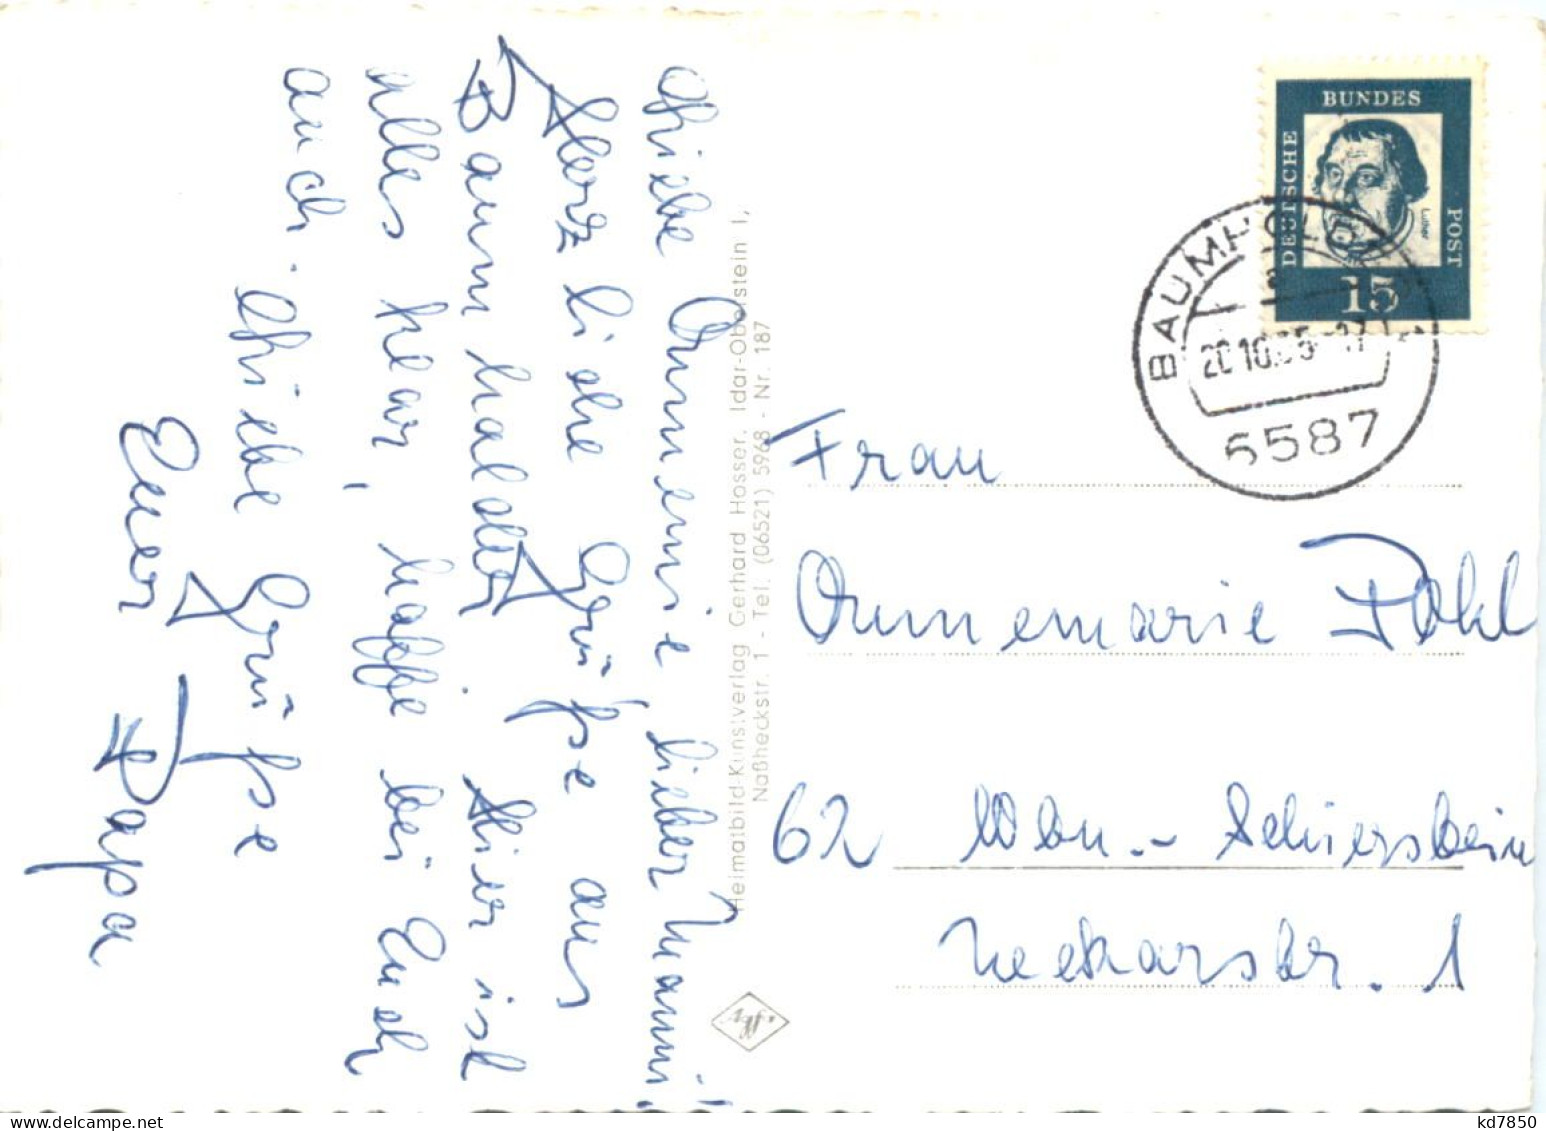 Liebe Annemie, lieber Manni!
Herzliche Grüße aus
Baumholder. Hier ist
alles klar, hoffe bei Euch
auch. Liebe Grüße
Euer Papa
Heimatbild-Kunstverlag Gerhard Hosser, Idar-Oberstein 1,
Naßheckstr. 1 - Tel. (06521) 5968 - Nr. 187
DEUTSCHE
BUNDES
POST
Luther
15
BAUMHOLDER
20.10.65-17
6587
Frau
Annemarie Pohl
62 Wbn.- Schierstein
Neckarstr. 1
kd7850